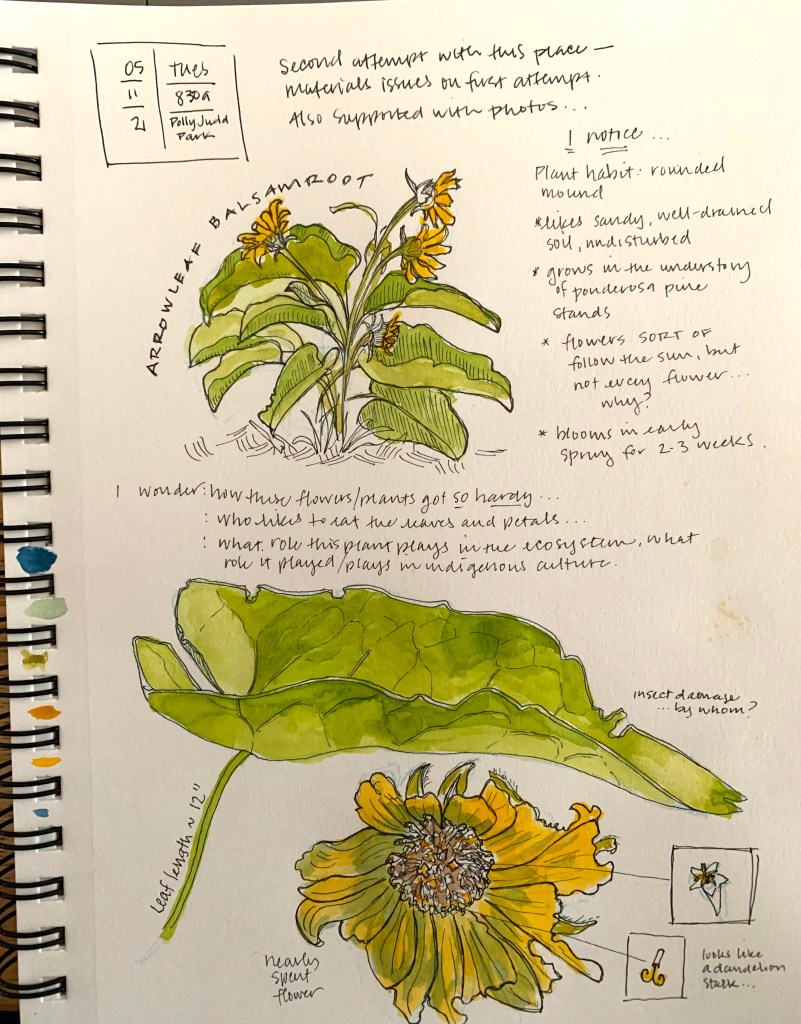 05
11
21
Tues
830a
Polly Judd
Park
Second attempt with this place —
materials issues on first attempt.
Also supported with photos...
I notice...
Plant habit: rounded
mound
*likes sandy, well-drained
soil, undisturbed
* grows in the understory
of ponderosa pine
stands
* flowers SORT OF
follow the sun, but
not every flower...
why?
* blooms in early
spring for 2-3 weeks.
ARROWLEAF BALSAMROOT
I wonder: how these flowers/plants got so hardy...
: who likes to eat the leaves and petals...
: what role this plant plays in the ecosystem, what
role it played/plays in indigenous culture.
insect damage
...by whom?
Leaf length ~ 12"
nearly
spent
flower
looks like
a dandelion
stalk...